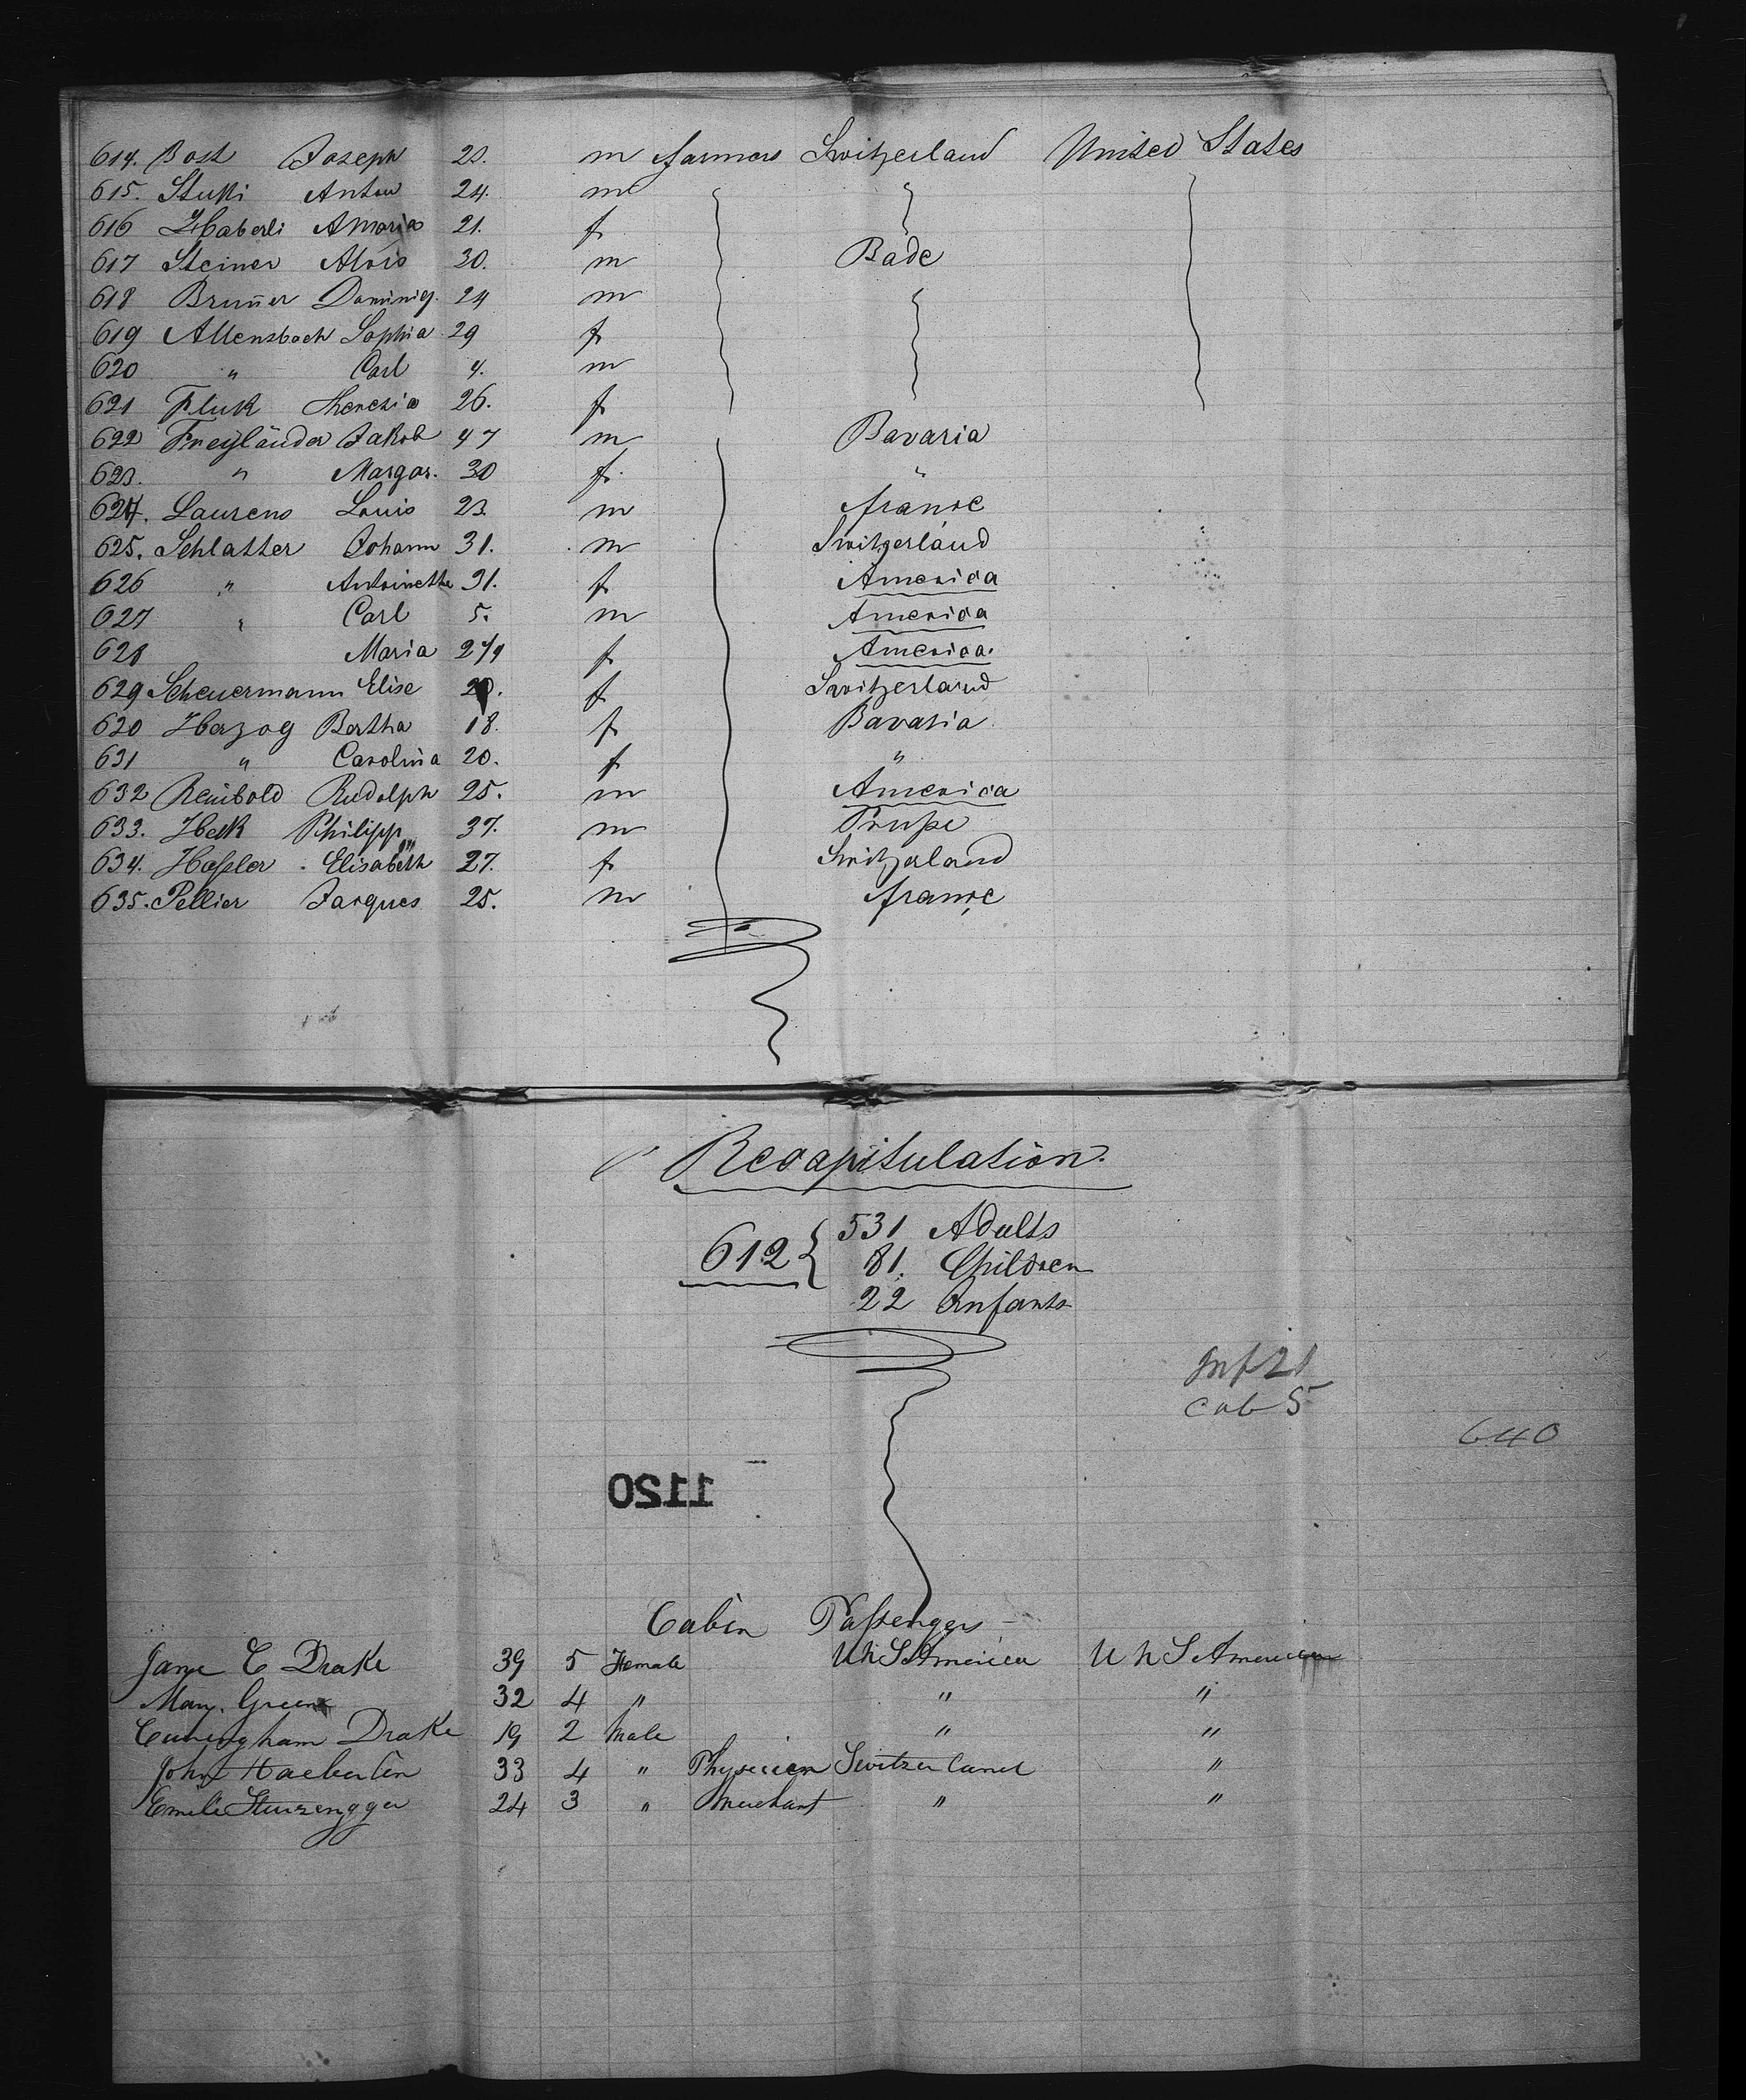 614. Bost Joseph 23. m farmers Switzerland United States
615. Stuki Anton 24. m
616 Haberli A Maria 21. f
617 Steiner Alois 30. m Bade
618 Bruñer Dominiq. 24 m
619 Allensbach Sophia 29 f
620 " Carl 4. m
621 Fluk Theresia 26. f
622 Freyländer Jakob 47 m Bavaria
623. " Margar. 30 f. "
624. Laurens Louis 23. m france
625. Schlatter Johann 31. m Switzerland
626 " Antoinette 31. f America
627 " Carl 5. m America
628 Maria f America.
629 Scheuermann Elise f Switzerland
630 Herzog Bertha 18. f Bavaria
631 " Carolina 20. f "
632 Reinbold Rudolph 25. m America
633. Heck Philipp 37. m Prusse
634. Hassler Elisabeth 27. f Switzerland
635. Pellier Jacques 25. m france
Recapitulation.
612 { 531 Adults
81. Children
22 Infants
Inf 21
Cab 5
640
1120
Cabin Passengers
Jane C Drake 39 5 Female U S America U S America
Mary Green 32 4 " " "
Cuningham Drake 19 2 Male " "
John Haeberlin 33 4 " Physician Switzerland "
Emile Sturzengger 24 3 " Merchant " "